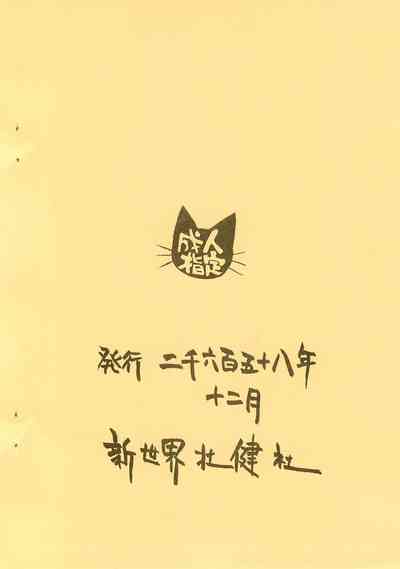 成人
指定
発行 二千六百五十八年
十二月
新世界壮健社